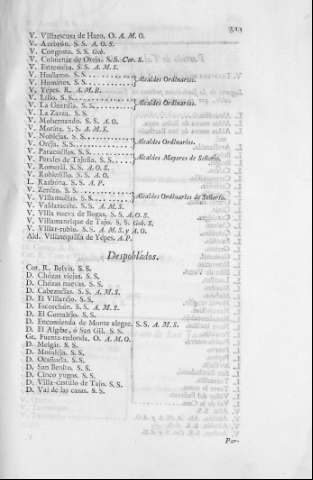 V. Villaescusa de Haro. O. A. M. O.
V. Azebrón. S. S. A. O. S.
V. Congosto. S. S. Gob.
V. Colmenar de Oreja. S. S. Cor. S.
V. Estremera. S. S. A. M. S.
V. Huelamo. S. S.
V. Humánes. S. S. Alcaldes Ordinarios.
V. Yepes. R. A. M. R.
V. Lillo. S. S.
V. La Guardia. S. S. Alcaldes Ordinarios.
V. La Zarza. S. S.
V. Mohernando. S. S. A. O.
V. S. S. A. M. S.
V. Noblejas. S. S.
V. Oreja. S. S. Alcaldes Ordinarios.
V. Paracuellos. S. S.
V. Perales de Tajuña. S. S. Alcaldes Mayores de Señorío.
V. Romeral. S. S. A. O. S.
V. Robledillo. S. S. A. O.
L. Razbona. S. S. A. P.
V. S. S.
V. Villamuelas. S. S. Alcaldes Ordinarios de Señorío.
V. Valdaracete. S. S. A. M. S.
V. Villa nueva de Bogas. S. S. A. O. S.
V. Villamanrique de Tajo. S. S. Gob. S.
V. Villar-rubio. S. S. A. M. S. y A. O.
Ald. Villasequilla de Yépes. A. P.
Despoblados.
Cot. R. Belvis. S. S.
D. Chozas viejas. S. S.
D. Chozas nuevas. S. S.
D. Cabezuelas. S. S. A. M. S.
D. El Villarejo. S. S.
D. Escorchón. S. S. A. M. S.
D. El S. S.
D. Encomienda de Monte alegre. S. S. A. M. S.
D. El Algibe, ó San Gil. S. S.
Gr. Fuenta-redonda. O. A. M. O.
D. Melgar. S. S.
D. S. S.
D. Ocañuela. S. S.
D. San Benito. S. S.
D. Cinco yugos. S. S.
D. Villa-castillo de Tajo. S. S.
D. Val de las casas. S. S.
Par-